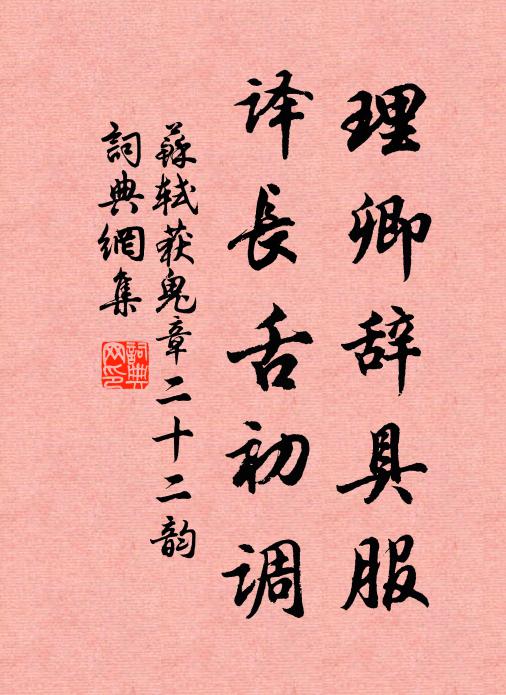 理卿辞具服
译長舌初调
蘇轼获鬼章二十二韵
詞典網集
詞典网印